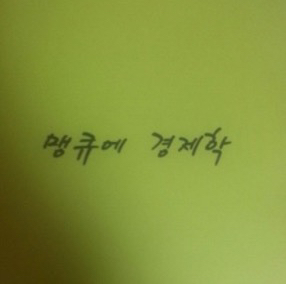 맹큐에 경제학